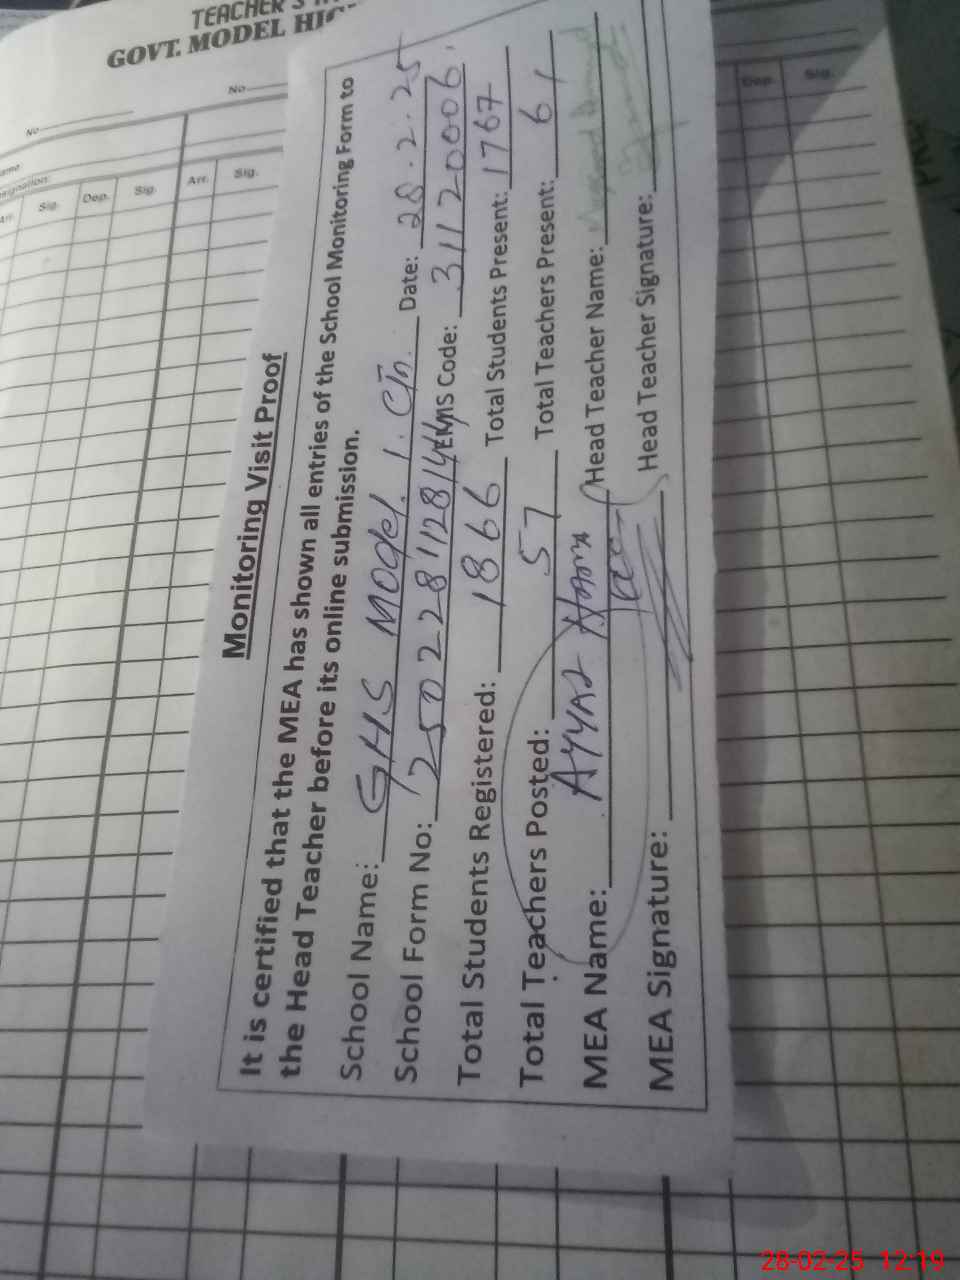 TEACHER'S
GOVT. MODEL HIG
No
No
Arr. Sig. Dep. Sig. Arr. Sig. Dep. Sig.
Monitoring Visit Proof
It is certified that the MEA has shown all entries of the School Monitoring Form to
the Head Teacher before its online submission.
School Name: GHS Model 1. Date: 28.2.25
School Form No: EMIS Code: 31120006.
Total Students Registered: 1866 Total Students Present: 1767
Total Teachers Posted: 57 Total Teachers Present: 61
MEA Name: AYYAZ Head Teacher Name:
MEA Signature: Head Teacher Signature:
28-02-25 12:19